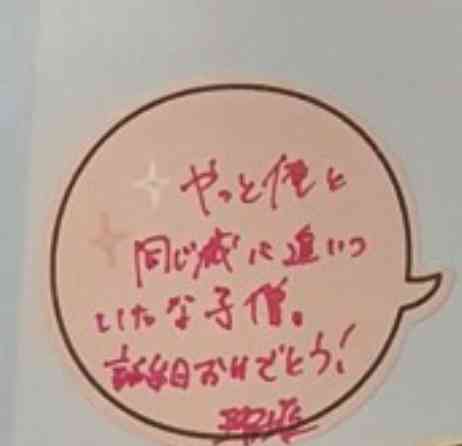 やっと俺と
同じ歳に追いつ
いたな子僧。
誕生日おめでとう!